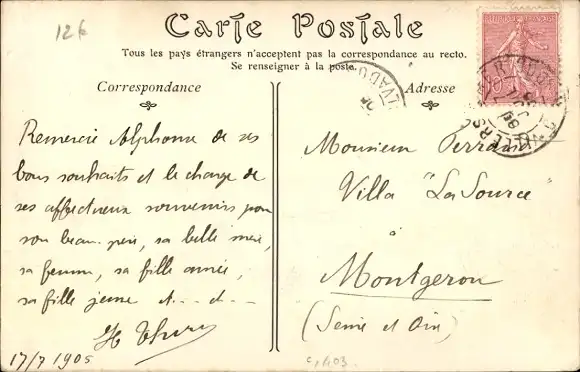 12€
Carte Postale
Tous les pays étrangers n'acceptent pas la correspondance au recto.
Se renseigner à la poste.
Correspondance
Remercie Alphonse de ses
bons souhaits et le charge de
ses affectueux souvenirs pour
son beau-père, sa belle mère,
sa femme, sa fille aînée,
sa fille jeune et
17/7 1905
Adresse
Monsieur Perrand
Villa "La Source"
à
Montgeron
(Seine et Oise)